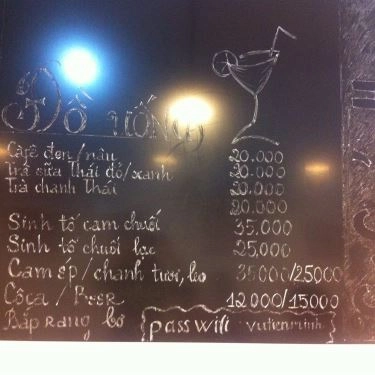 Đồ uống
Cafê đen/nâu 20.000
Trà sữa thái đỏ/xanh 20.000
Trà chanh thái 20.000
20.000
Sinh tố cam chuối 35.000
Sinh tố chuối lạc 25,000
Cam ép/chanh tươi, leo 35000/25000
Côca/Beer 12000/15000
Bắp rang bơ
pass wifi: vutienminh